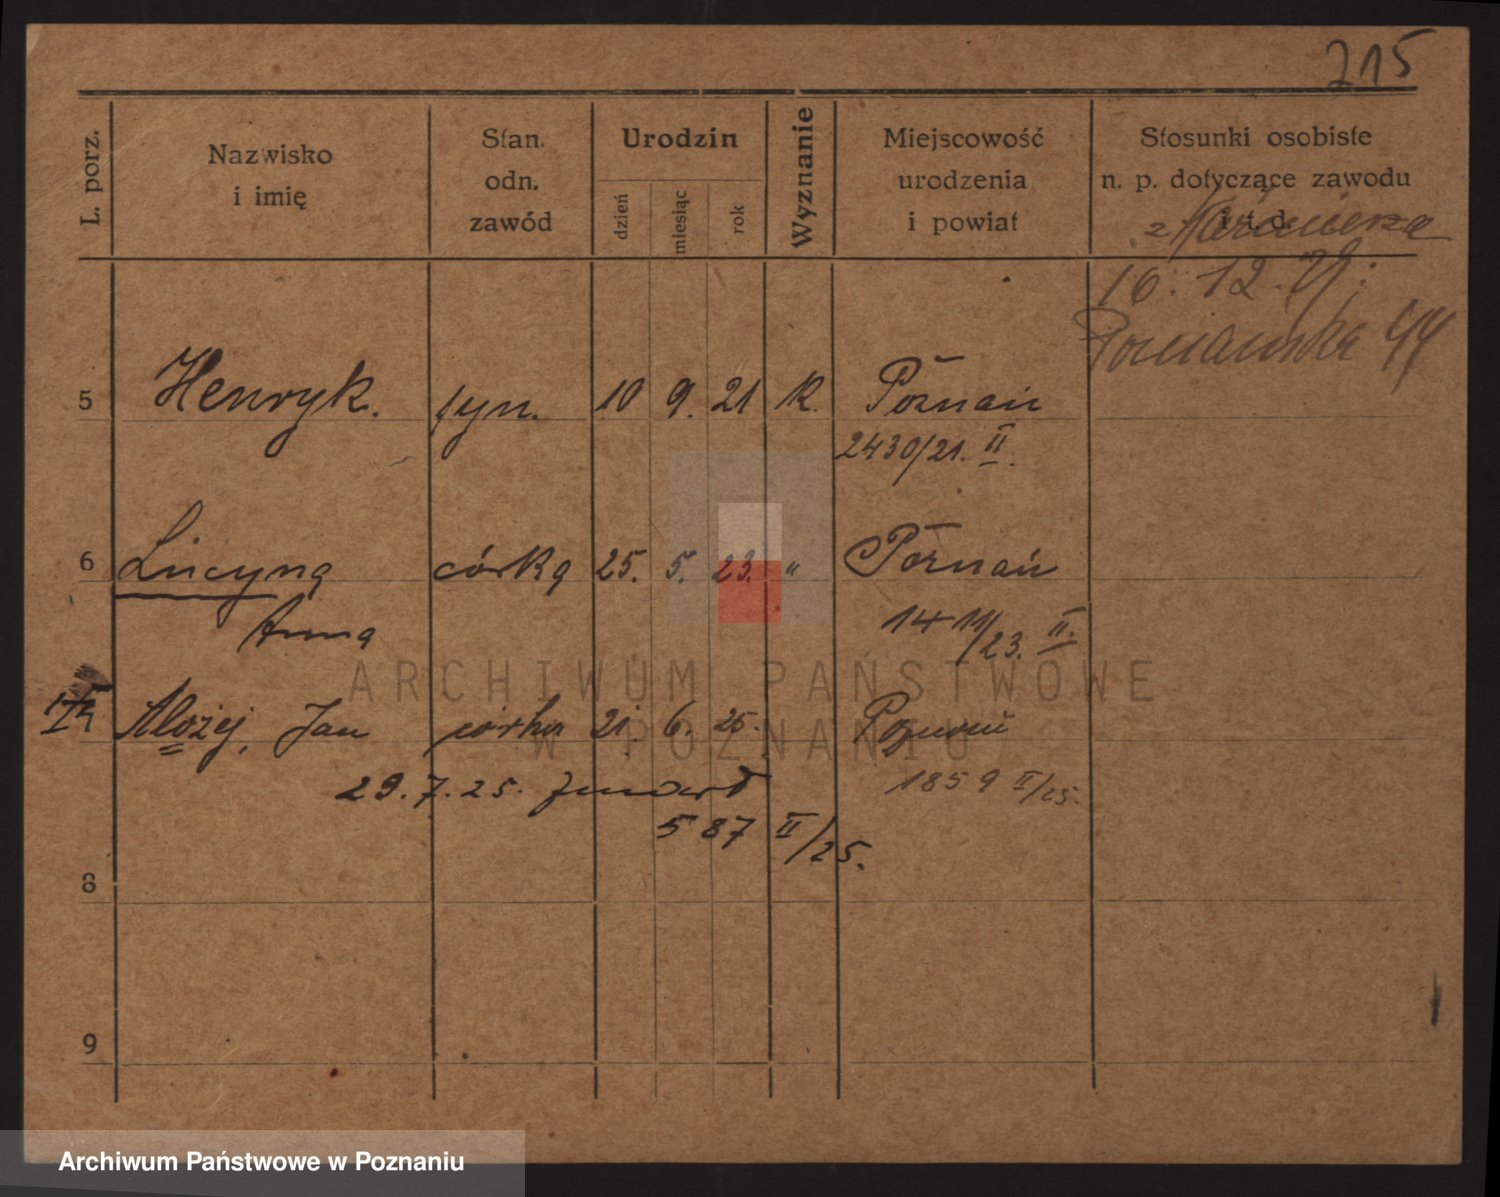 215
L. porz.
Nazwisko
i imię
Stan.
odn.
zawód
Urodzin
dzień
miesiąc
rok
Wyznanie
Miejscowość
urodzenia
i powiat
Stosunki osobiste
n. p. dotyczące zawodu
i t. d.
z Kaźmierza
16. 12. 29.
Poznańska 44
5 Henryk. syn. 10 9. 21 K. Poznań
2430/21. II.
6 Lucyna córka 25. 5. 23. " Poznań
Anna
1411/23. II.
Alojzy, Jan córka 21. 6. 25. Poznań
29. 7. 25. zmarł
1859 II/25.
587 II/25.
8
9
ARCHIWUM PAŃSTWOWE
W POZNANIU
Archiwum Państwowe w Poznaniu